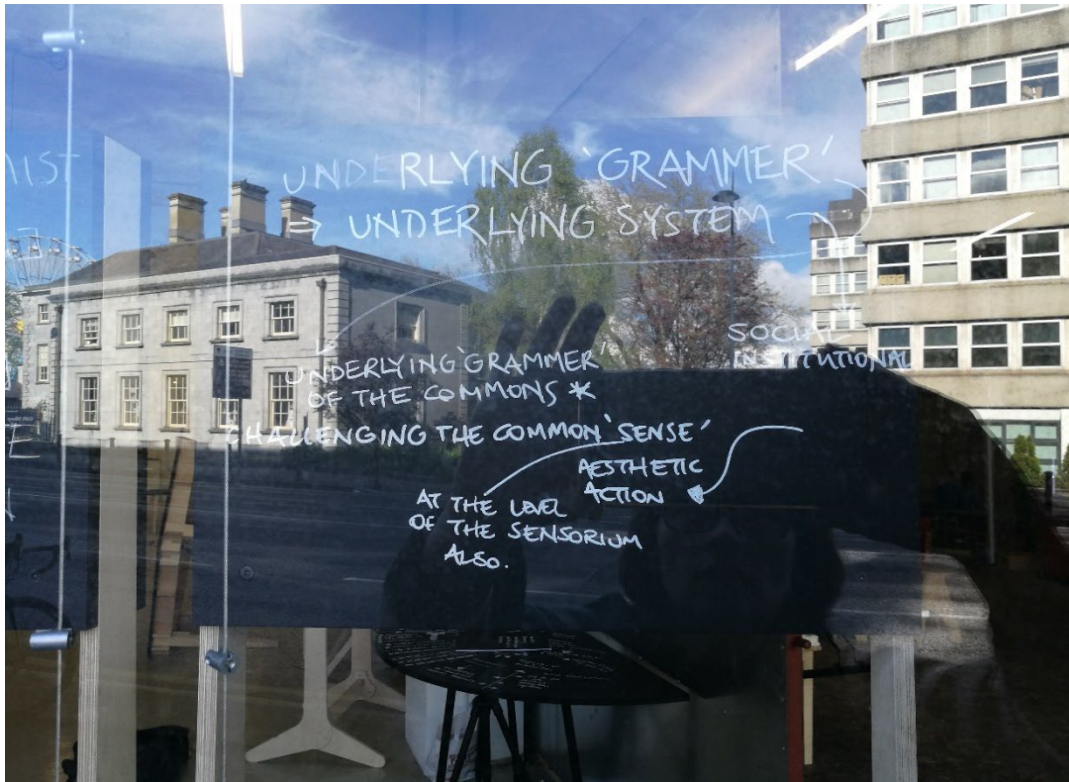 IST
UNDERLYING 'GRAMMER'
⇒ UNDERLYING SYSTEM
SOCIAL
INSTITUTIONAL
UNDERLYING 'GRAMMER'
OF THE COMMONS *
CHALLENGING THE COMMON 'SENSE'
AESTHETIC
ACTION
AT THE LEVEL
OF THE SENSORIUM
ALSO.